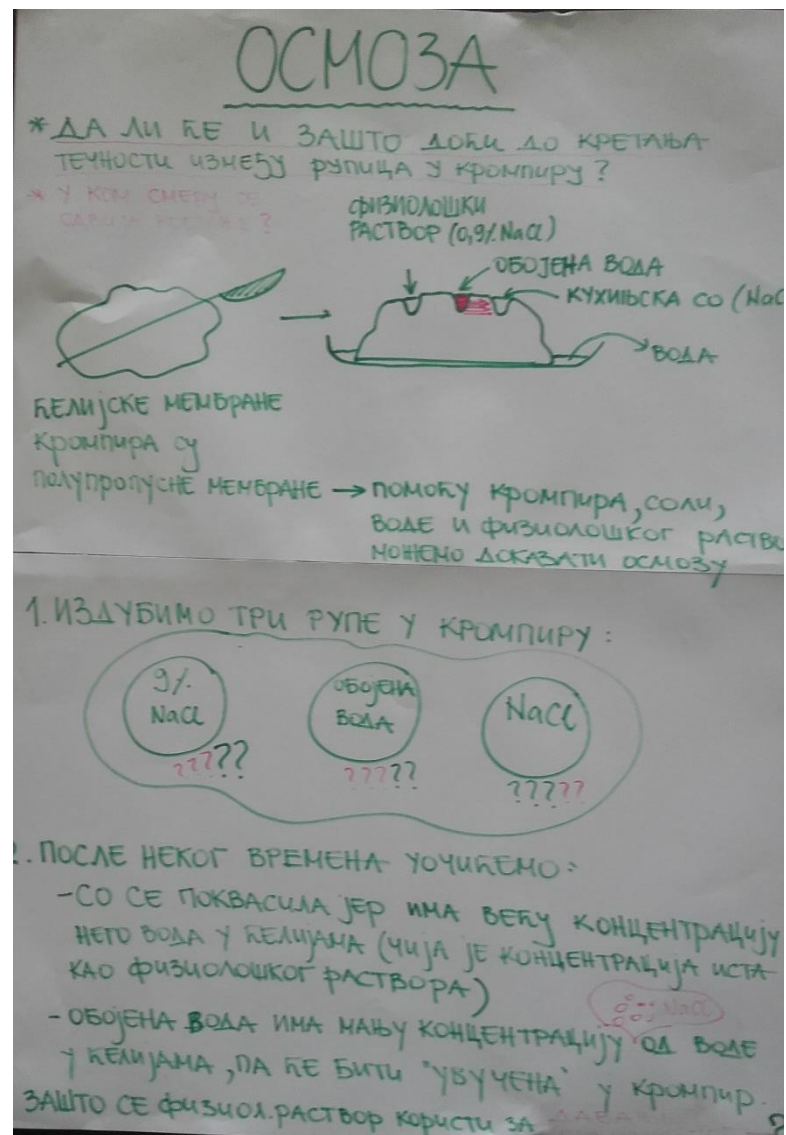 ОСМОЗА
* ДА ЛИ ЋЕ И ЗАШТО ДОЋИ ДО КРЕТАЊА
ТЕЧНОСТИ ИЗМЕЂУ РУПИЦА У КРОМПИРУ?
* У КОМ СМЕРУ СЕ
?
ФИЗИОЛОШКИ
РАСТВОР (0,9% NaCl)
ОБОЈЕНА ВОДА
КУХИЊСКА СО (NaC
ВОДА
ЋЕЛИЈСКЕ МЕМБРАНЕ
КРОМПИРА СУ
ПОЛУПРОПУСНЕ МЕМБРАНЕ → ПОМОЋУ КРОМПИРА, СОЛИ,
ВОДЕ И ФИЗИОЛОШКОГ РАСТВО
МОЖЕМО ДОКАЗАТИ ОСМОЗУ
1. ИЗДУБИМО ТРИ РУПЕ У КРОМПИРУ:
9%
NaCl
?????
ОБОЈЕНА
ВОДА
?????
NaCl
?????
2. ПОСЛЕ НЕКОГ ВРЕМЕНА УОЧИЋЕМО:
- СО СЕ ПОКВАСИЛА ЈЕР ИМА ВЕЋУ КОНЦЕНТРАЦИЈУ
НЕГО ВОДА У ЋЕЛИЈАМА (ЧИЈА ЈЕ КОНЦЕНТРАЦИЈА ИСТА
КАО ФИЗИОЛОШКОГ РАСТВОРА)
NaCl
- ОБОЈЕНА ВОДА ИМА МАЊУ КОНЦЕНТРАЦИЈУ ОД ВОДЕ
У ЋЕЛИЈАМА, ПА ЋЕ БИТИ "УВУЧЕНА" У КРОМПИР.
ЗАШТО СЕ ФИЗИОЛ. РАСТВОР КОРИСТИ ЗА ?